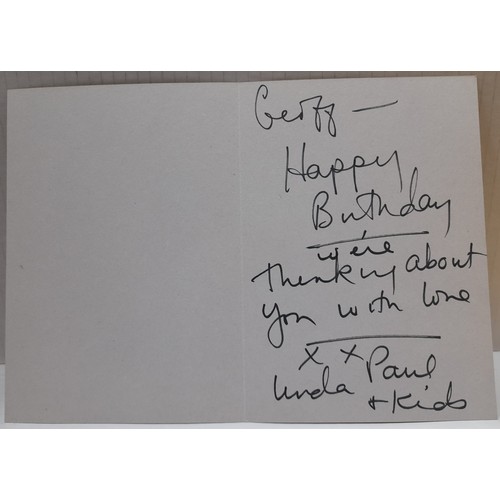 Geoff —
Happy
Birthday
we're
thinking about
you with love
x x
Linda Paul
+ Kids